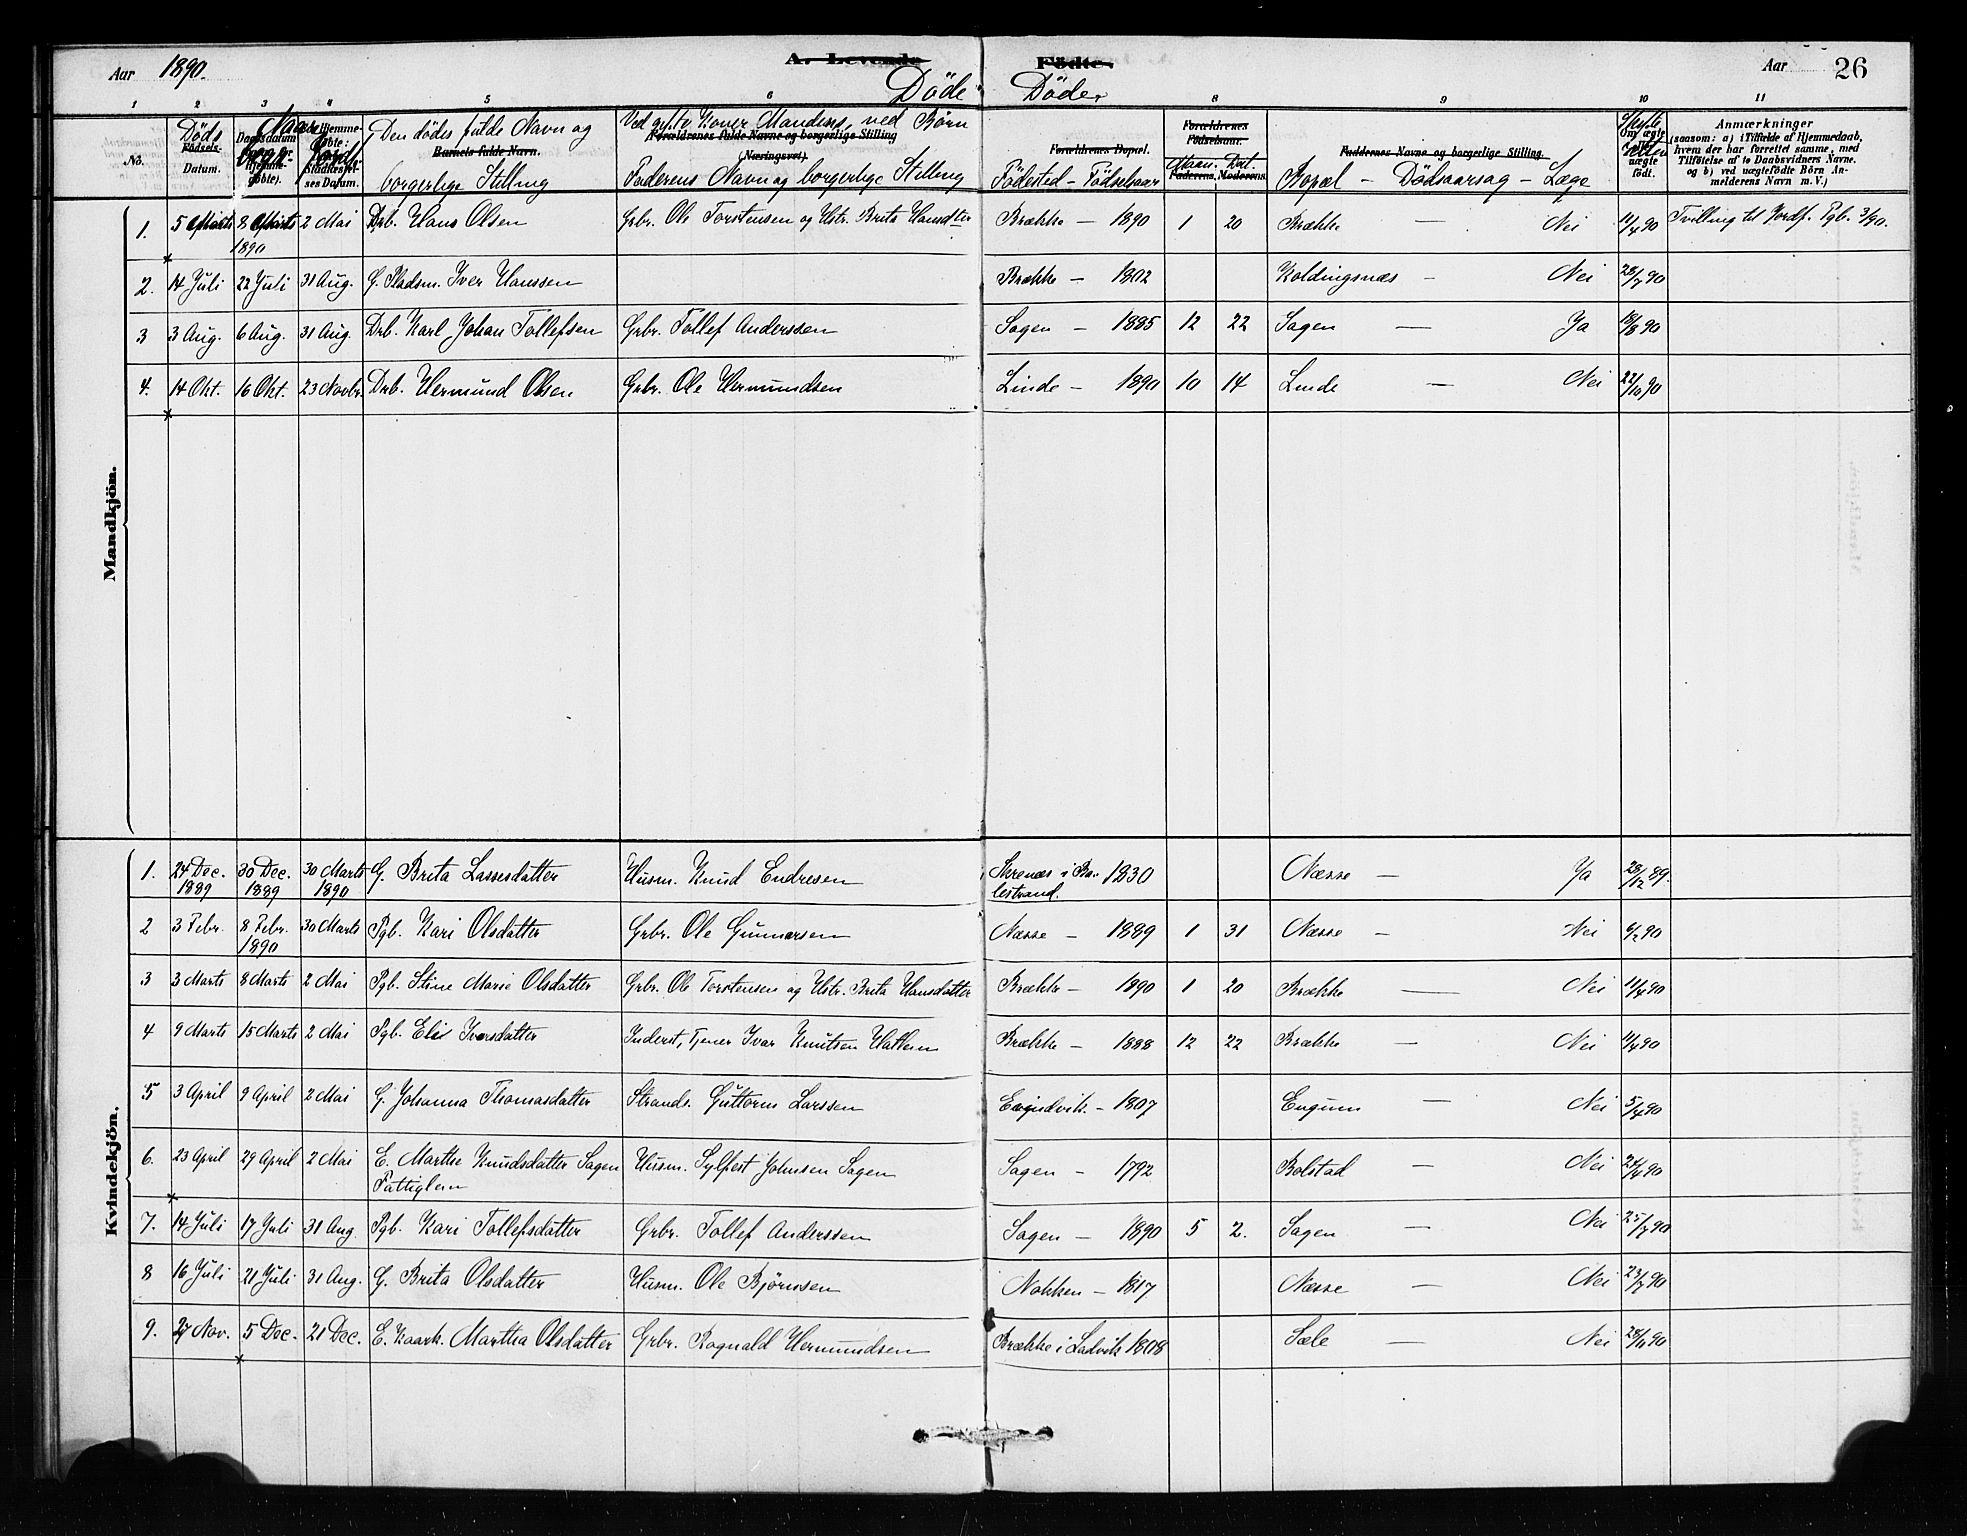 Aar 1890. A. Levende Födte. Aar 26
Döde Döde.
1 2 3 4 5 6 8 9 10 11
No. Döds Födsels-Datum. Den dödes fulde Navn og borgerlige Stilling Barnets fulde Navn.
Ved gifte Koner Mandens, ved Børn Faderens Navn og borgerlige Stilling
Forældrenes fulde Navne og borgerlige Stilling (Næringsvei)
Forældrenes Bopæl. Födested - Födselsaar
Forældrenes Födselsaar. Faderens. Moderens. Maan. Dat.
Faddernes Navne og borgerlige Stilling. Bopæl - Dödsaarsag - Læge
Om ægte eller uægte födt.
Anmærkninger
(saasom: a) i Tilfælde af Hjemmedaab,
hvem der har forrettet samme, med
Tilföielse af to Daabsvidners Navne.
og b) ved uægtefödte Börn An-
melderens Navn m. V.)
Mandkjön.
1. 5 Marts 8 Marts 1890 2 Mai Drb. Hans Olsen Grbr. Ole Torstensen og Hstr. Brita Hansdter Brække - 1890 1 20 Brække - Nei 11/4 90 Tvilling til Nordf. Pgb. 3/90.
2. 14 Juli 22 Juli 31 Aug. G. Pladsm. Iver Hanssen Brække - 1802 Koldingsnæs - Nei 28/7 90
3 3 Aug. 6 Aug. 31 Aug. Drb. Karl Johan Tollefsen Grbr. Tollef Anderssen Sagen - 1885 12 22 Sagen - Ja 18/8 90
4. 14 Okt. 16 Okt. 23 Novbr. Drb. Hermund Olsen Grbr. Ole Hermundsen Linde - 1890 10 14 Linde - Nei 22/10 90
Kvindekjön.
1. 24 Dec. 1889 30 Dec. 1889 30 Marts 1890 G. Brita Lassesdatter Husm. Knud Endresen Skrenæs i Balestrand. 1830 Næsse - Ja 28/12 89.
2 3 Febr. 8 Febr. 1890 30 Marts Pgb. Kari Olsdatter Grbr. Ole Gunnarsen Næsse - 1889 1 31 Næsse - Nei 6/2 90
3 3 Marts 8 Marts 2 Mai Pgb. Stine Marie Olsdatter Grbr. Ole Torstensen og Hstr. Brita Hansdatter Brække - 1890 1 20 Brække - Nei 11/4 90
4 9 Marts 15 Marts 2 Mai Pgb. Elis Iversdatter Inderst, Tjener Ivar Knutsen Hatlem Brække - 1888 12 22 Brække - Nei 11/4 90
5 3 April 9 April 2 Mai G. Johanna Thomasdatter Strands. Guttorm Larssen Evindvik - 1807 Engum - Nei 5/4 90
6. 23 April 29 April 2 Mai E. Marthe Knudsdatter Sagen Fattiglem Husm. Sylfest Johnsen Sagen Sagen - 1792 Bolstad - Nei 24/4 90
7. 14 Juli 17 Juli 31 Aug Pgb. Kari Tollefsdatter Grbr. Tollef Anderssen Sagen - 1890 5 2. Sagen - Nei 25/7 90
8 16 Juli 21 Juli 31 Aug. G. Brita Olsdatter Husm. Ole Bjørnsen Nokken - 1817 Næsse - Nei 23/7 90
9. 27 Nov. 5 Dec. 21 Dec. E. Kaark. Martha Olsdatter Grbr. Ragnald Hermundsen Brække i Ladvik 1808 Sæle - Nei 28/11 90